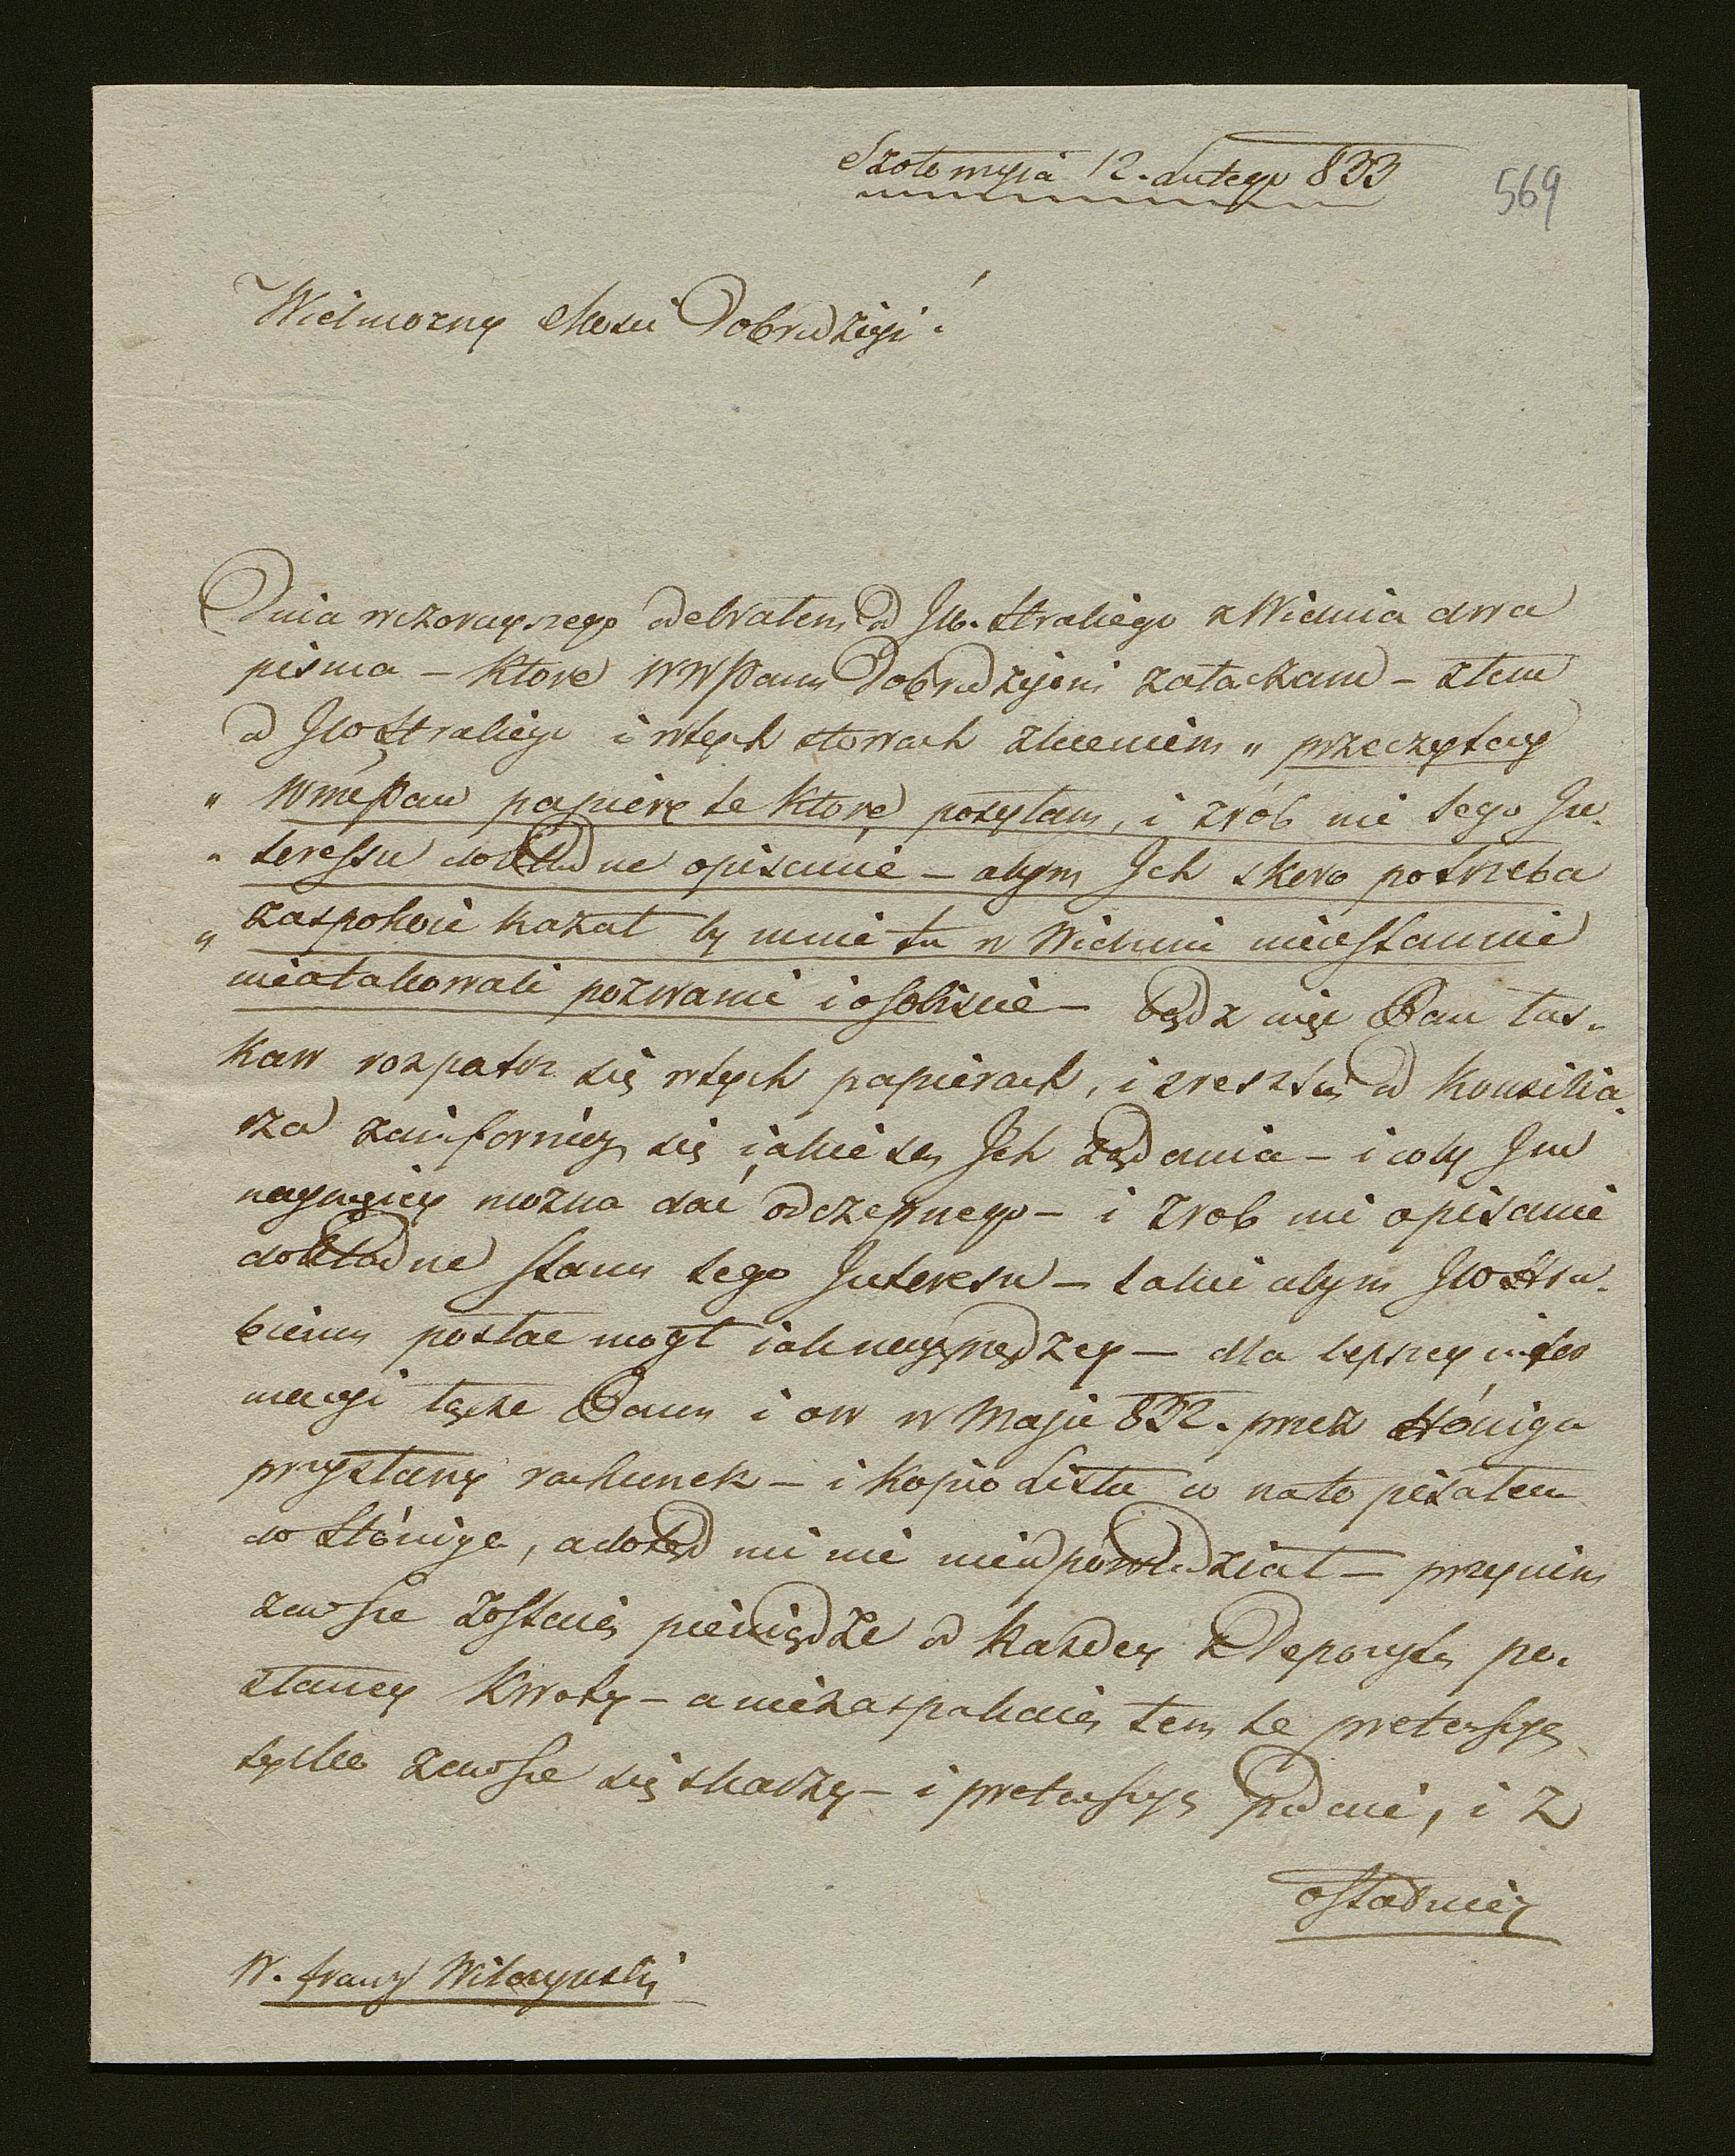 Szołomyia 12. Lutego 833
569
Wielmożny Mości Dobrodzieju!
Dnia wczorayszego odebrałem od JW. Hrabiego z Wiednia dwa
pisma – które WWPanu Dobrodziejowi załączam – z tem
od JWo Hrabiego i w tych słowach zleceniem „ przeczytay
„ WmśPan papiery te które posyłam, i zrób mi tego In-
„ teressu dokładne opisanie – abym Ich skoro potrzeba
„ zaspokoić kazał by mnie tu w Wiedniu nieustannie
nieatakowali pozwami i osobiście – bądz więc Pan łas-
kaw rozpatrz się w tych papierach, i zresztą od Konsilia-
rza zainformuj się jakie są Ich żądania – i coby Im
naywięcy można dać odczepnego – i zrob mi opisanie
dokładne stanu tego Interesu – takie abym JWo Hra-
biemu posłać mógł jak nayprędzey – dla lepszey infor
macyi łączę Panu i ow w Maju 832. przez Höniga
przysłany rachunek – i kopio Listu co na to pisałem
do Höniga, a dotąd mi nic nieodpowiedział – przynim
zawsze zostaią pieniądze od każdey z Depozytu po-
słaney kwoty – a niezaspakaiaiąc tem te pretensye
tylko zawsze się skarzy – i pretensye podaie, i z
ostatniey
W. Franz Wilczynski